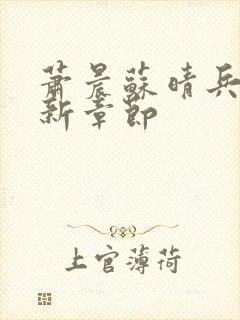 蕭晨蘇晴兵
新章節
上官薄荷